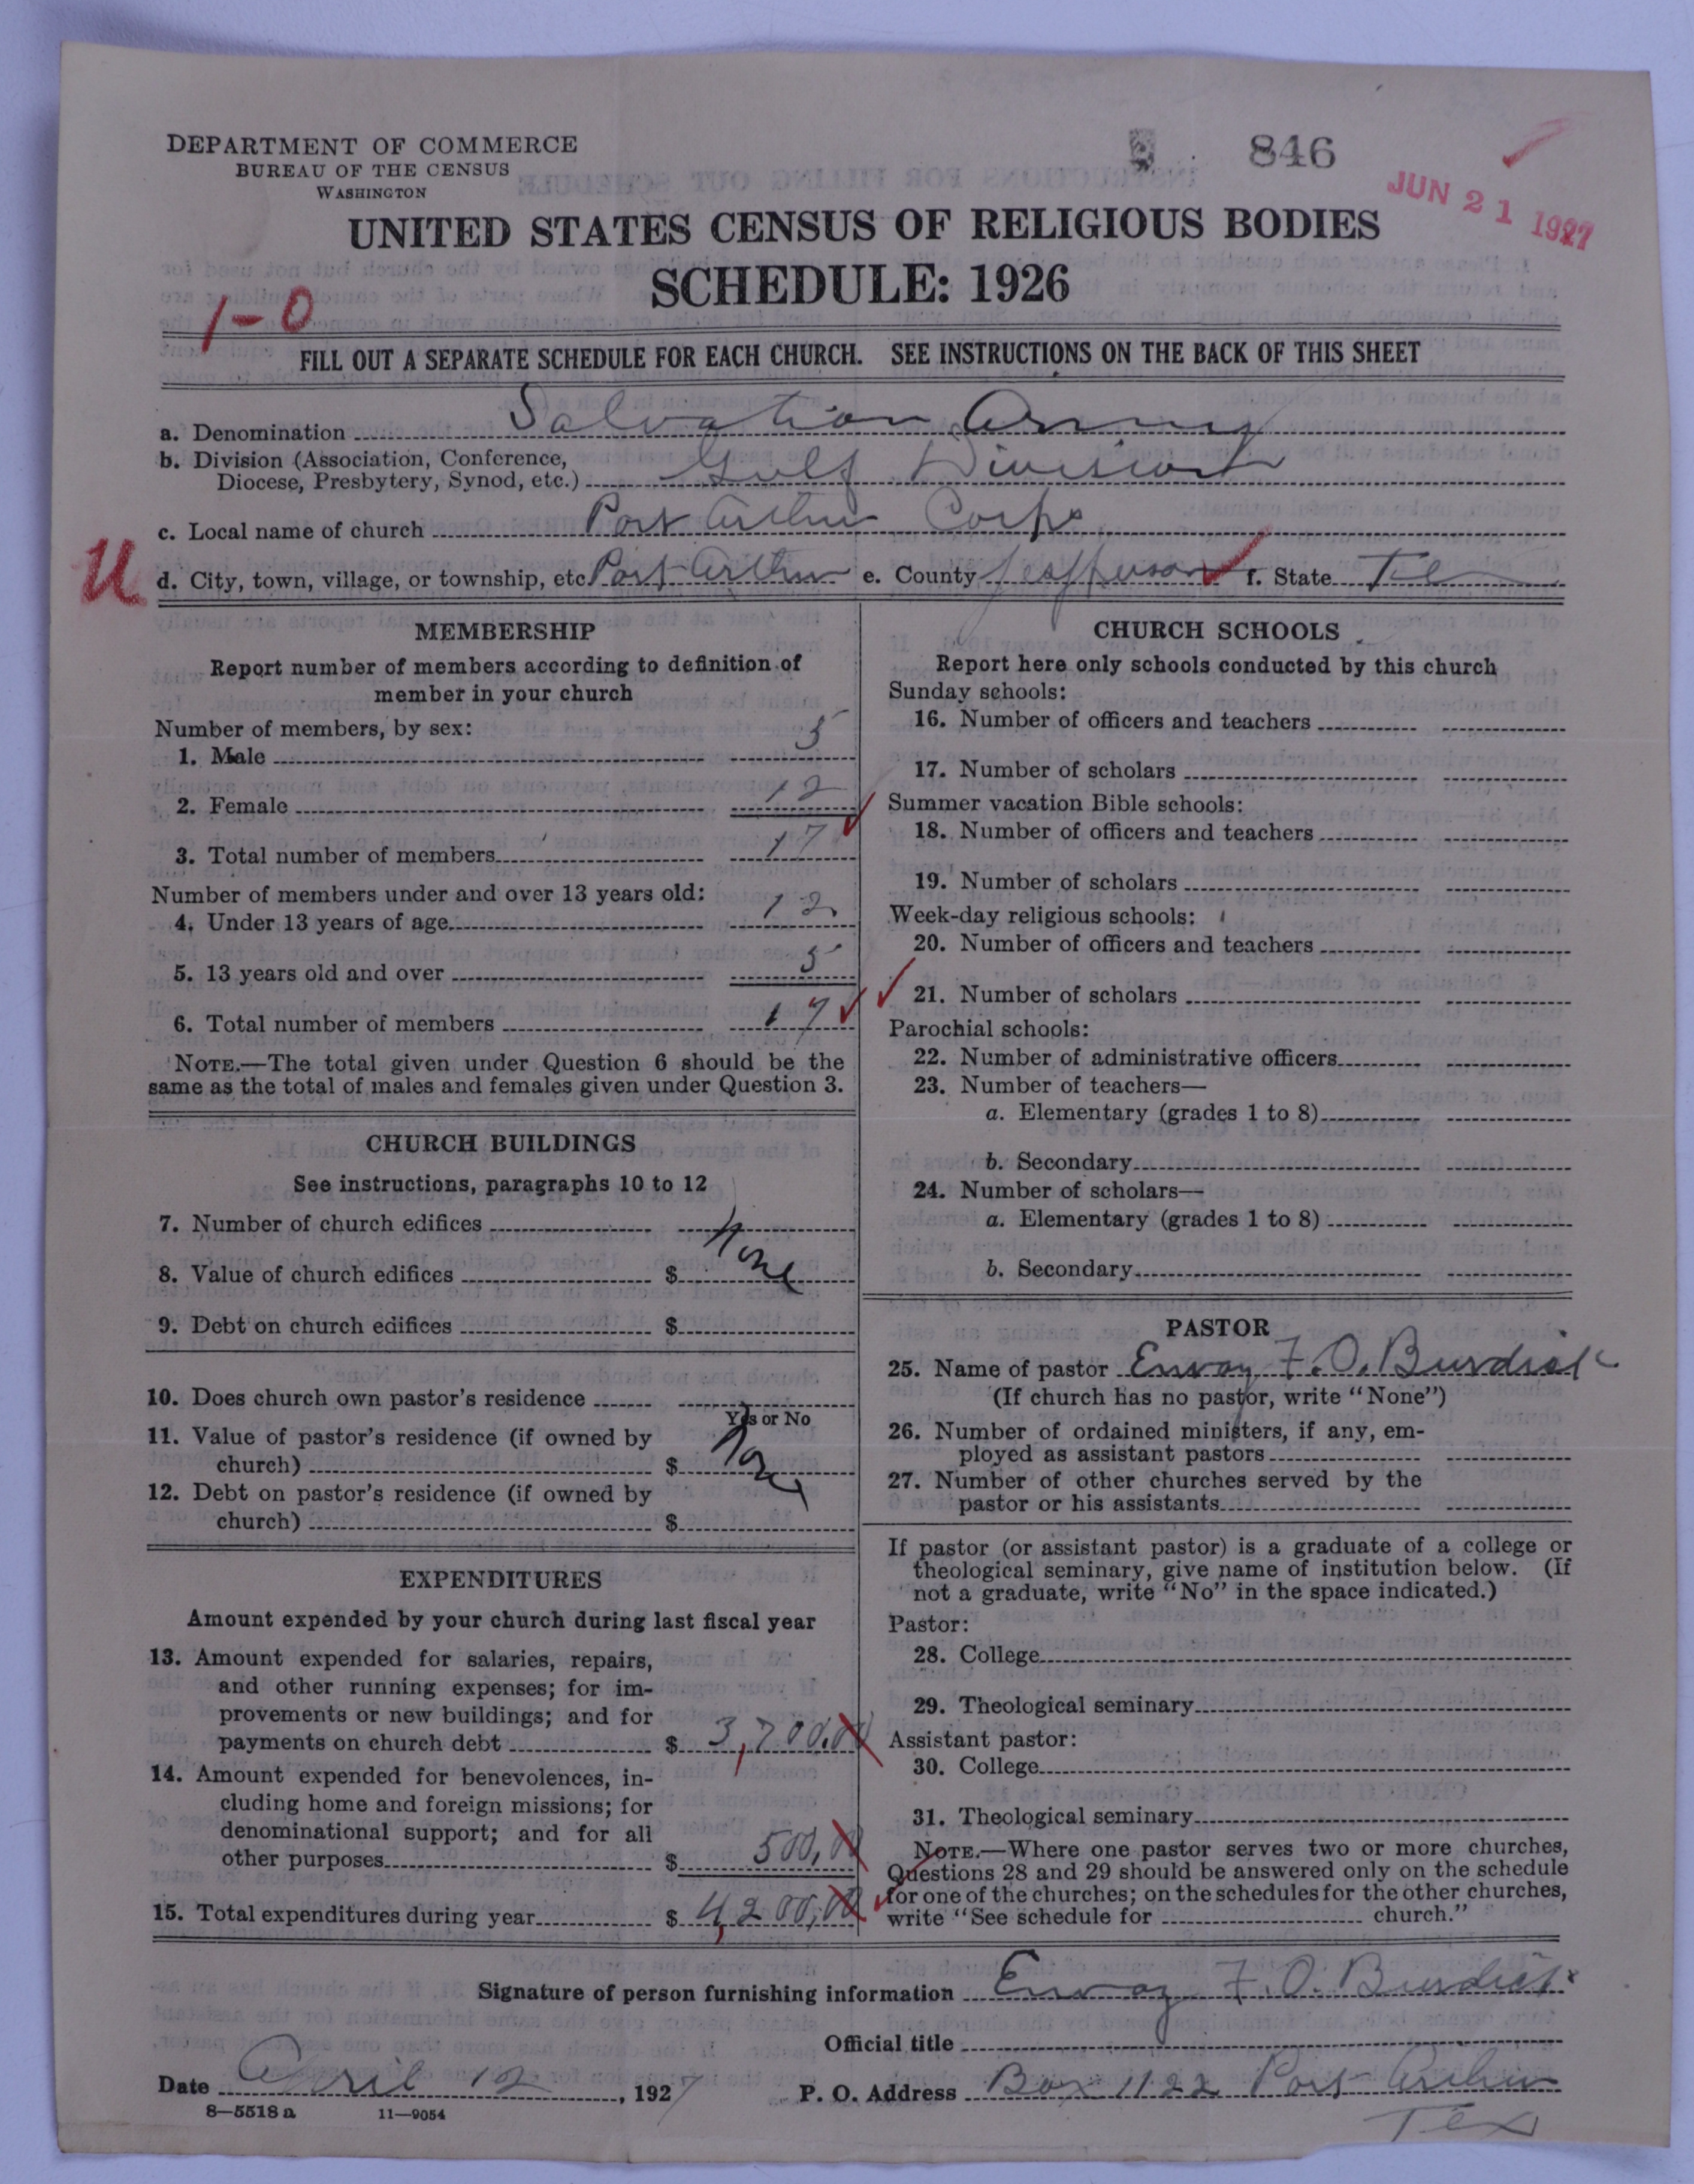 DEPARTMENT OF COMMERCE
BUREAU OF THE CENSUS
WASHINGTON
846
JUN 21 1927
UNITED STATES CENSUS OF RELIGIOUS BODIES
SCHEDULE: 1926
1-0
FILL OUT A SEPARATE SCHEDULE FOR EACH CHURCH. SEE INSTRUCTIONS ON THE BACK OF THIS SHEET
a. Denomination Salvation Army
b. Division (Association, Conference,
Diocese, Presbytery, Synod, etc.) Gulf Division
c. Local name of church Port Arthur Corps
U
d. City, town, village, or township, etc. Port Arthur e. County Jeafferson f. State
MEMBERSHIP
Report number of members according to definition of
member in your church
Number of members, by sex:
1. Male 5
2. Female 12
3. Total number of members 17
Number of members under and over 13 years old:
4. Under 13 years of age 12
5. 13 years old and over 5
6. Total number of members 17
NOTE.—The total given under Question 6 should be the
same as the total of males and females given under Question 3.
CHURCH BUILDINGS
See instructions, paragraphs 10 to 12
7. Number of church edifices
None
8. Value of church edifices $
9. Debt on church edifices $
10. Does church own pastor's residence
Yes or No
11. Value of pastor's residence (if owned by
church) $
None
12. Debt on pastor's residence (if owned by
church) $
EXPENDITURES
Amount expended by your church during last fiscal year
13. Amount expended for salaries, repairs,
and other running expenses; for im-
provements or new buildings; and for
payments on church debt $ 3,700.00
14. Amount expended for benevolences, in-
cluding home and foreign missions; for
denominational support; and for all
other purposes $ 500,00
15. Total expenditures during year $ 4,200,00
CHURCH SCHOOLS
Report here only schools conducted by this church
Sunday schools:
16. Number of officers and teachers
17. Number of scholars
Summer vacation Bible schools:
18. Number of officers and teachers
19. Number of scholars
Week-day religious schools:
20. Number of officers and teachers
21. Number of scholars
Parochial schools:
22. Number of administrative officers
23. Number of teachers—
a. Elementary (grades 1 to 8)
b. Secondary
24. Number of scholars—
a. Elementary (grades 1 to 8)
b. Secondary
PASTOR
25. Name of pastor Envoy F. O. Burdick
(If church has no pastor, write "None")
26. Number of ordained ministers, if any, em-
ployed as assistant pastors
27. Number of other churches served by the
pastor or his assistants
If pastor (or assistant pastor) is a graduate of a college or
theological seminary, give name of institution below. (If
not a graduate, write "No" in the space indicated.)
Pastor:
28. College
29. Theological seminary
Assistant pastor:
30. College
31. Theological seminary
NOTE.—Where one pastor serves two or more churches,
Questions 28 and 29 should be answered only on the schedule
for one of the churches; on the schedules for the other churches,
write "See schedule for church."
Signature of person furnishing information Envoy F. O. Burdick
Official title
Date April 12, 1927 P. O. Address Box 1122 Port Arthur
Tex
8—5518 a 11—9054